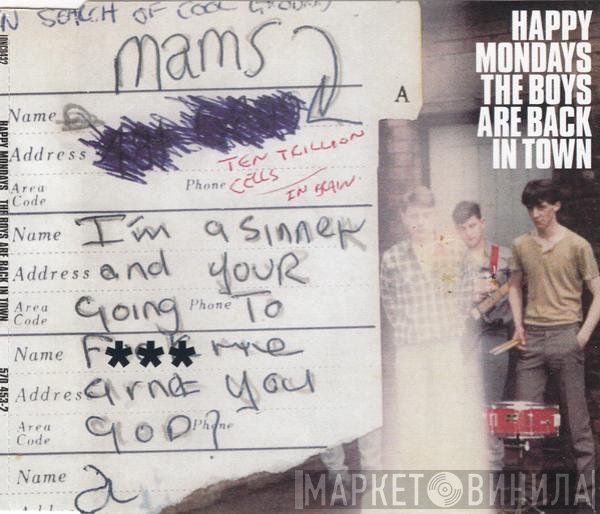 IN SEARCH OF COOL
mams
A
Name
Address
Area Code
Phone
TEN TRILLION
CELLS
IN BRAIN.
Name I'm a sinner
Address and YOUR
Area Code Going Phone To
Name F***me
Address arnt you
Area Code GOD? Phone
Name a
HAPPY
MONDAYS
THE BOYS
ARE BACK
IN TOWN
HAPPY MONDAYS THE BOYS ARE BACK IN TOWN
570 453-2
МАРКЕТ ВИНИЛА